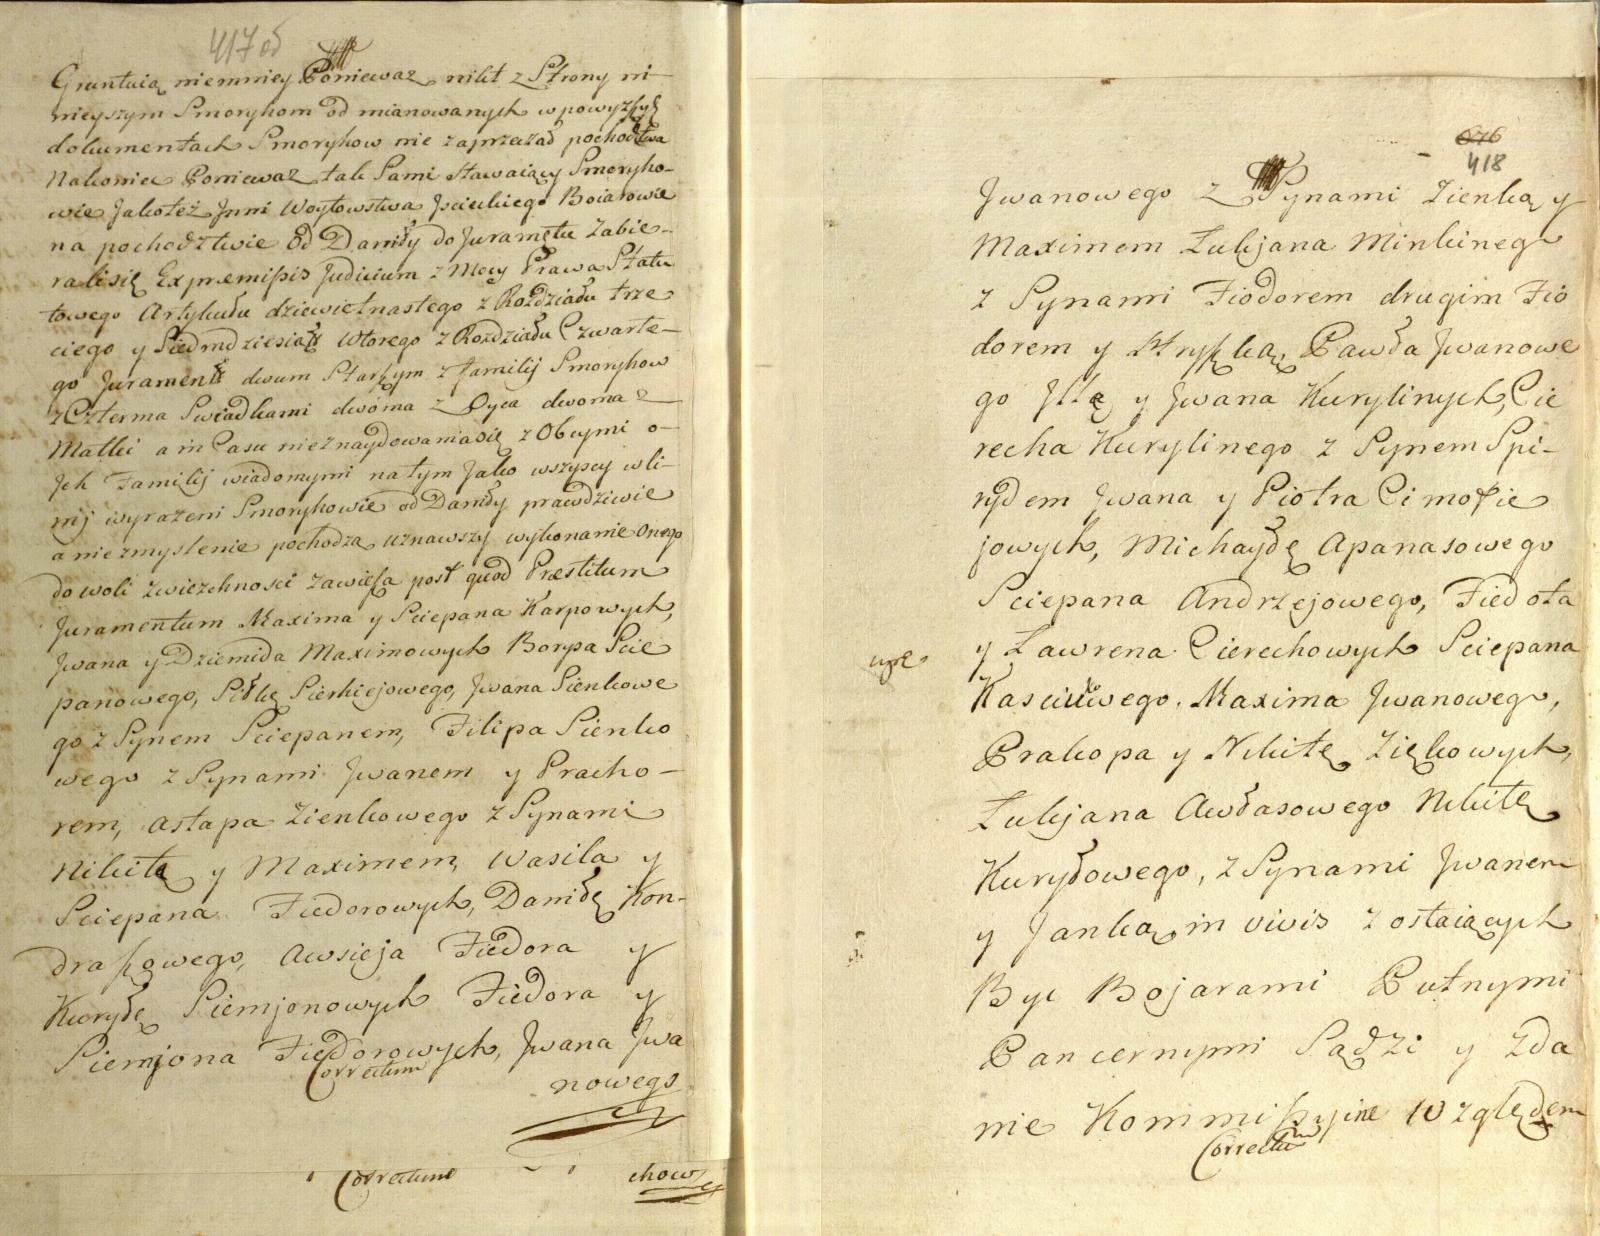 417 об
Gruntuią niemniey Poniewaz nikt z Strony ni
nieyszym Smorykom od mianowanych w powyzszych
dokumentach Smorykow nie zaprzeczał pochodztwa
Nakoniec Poniewaz tak Sami Stawaiący Smoryko-
wie Jakoteż Jnni Woytowstwa Jscieckiego Boiarowie
na pochodztwie od Daniły do Juramentu Zabie-
rali się Expræmissis Judicium z Mocy Prawa Statu
towego Artykułu dziewietnastego z Rozdziału trze
ciego y Siedmdziesiąt Wtorego z Rozdziału Czwarte-
go Jurament dwum Starszym z familij Smorykow
z Czterma Swiadkami dwoma z Oyca dwoma z
Matki a in Casu nieznaydowania się z Obcymi o
Jch Familij wiadomymi na tym Jako wszyscy w li-
nij wyrazeni Smorykowie od Daniły prawdziwie
a niezmyslenie pochodzą uznawszy wykonanie onego
do woli zwiezchnosci zawiesza post quod Præstitum
Juramentum Maxima y Sciepana Karpowych,
Jwana y Dziemida Maximowych Borysa Scie
panowego, Siłkę Sierhiejowego, Jwana Sienkowe
go z Synem Sciepanem, Filipa Sienko
wego z Synami Jwanem y Pracho-
rem, Astapa Zienkowego z Synami
Nikitą y Maximem, Wasila y
Sciepana Fiedorowych, Daniłę Kon-
draszowego, Awsieja Fiedora y
Kuryłę Siemjonowych Fiedora y
Siemjona Fiedorowych, Jwana Jwa
Correctum
nowego
Correctum
chow
418
Jwanowego z Synami Zienką y
Maximem Łukjana Minkinego
z Synami Fiodorem drugim Fio
dorem y Hryszką, Pawła Jwanowe
go Jllę y Jwana Kurylinych, Cie
recha Kurylinego z Synem Spi-
rydem Jwana y Piotra Cimofie
jowych, Michayłę Apanasowego
Sciepana Andrzejowego, Fiedota
y Ławrena Cierechowych Sciepana
Kasciukowego. Maxima Jwanowego,
Prakopa y Nikitę Ziękowych,
Łukjana Awłasowego Nikitę
Kuryłowego, z Synami Jwanem
y Janką in vivis zostaiących
Byc Bojarami Putnymi
Pancernymi Sądzi y Zda
nie Kommissyine Względem
Correctum